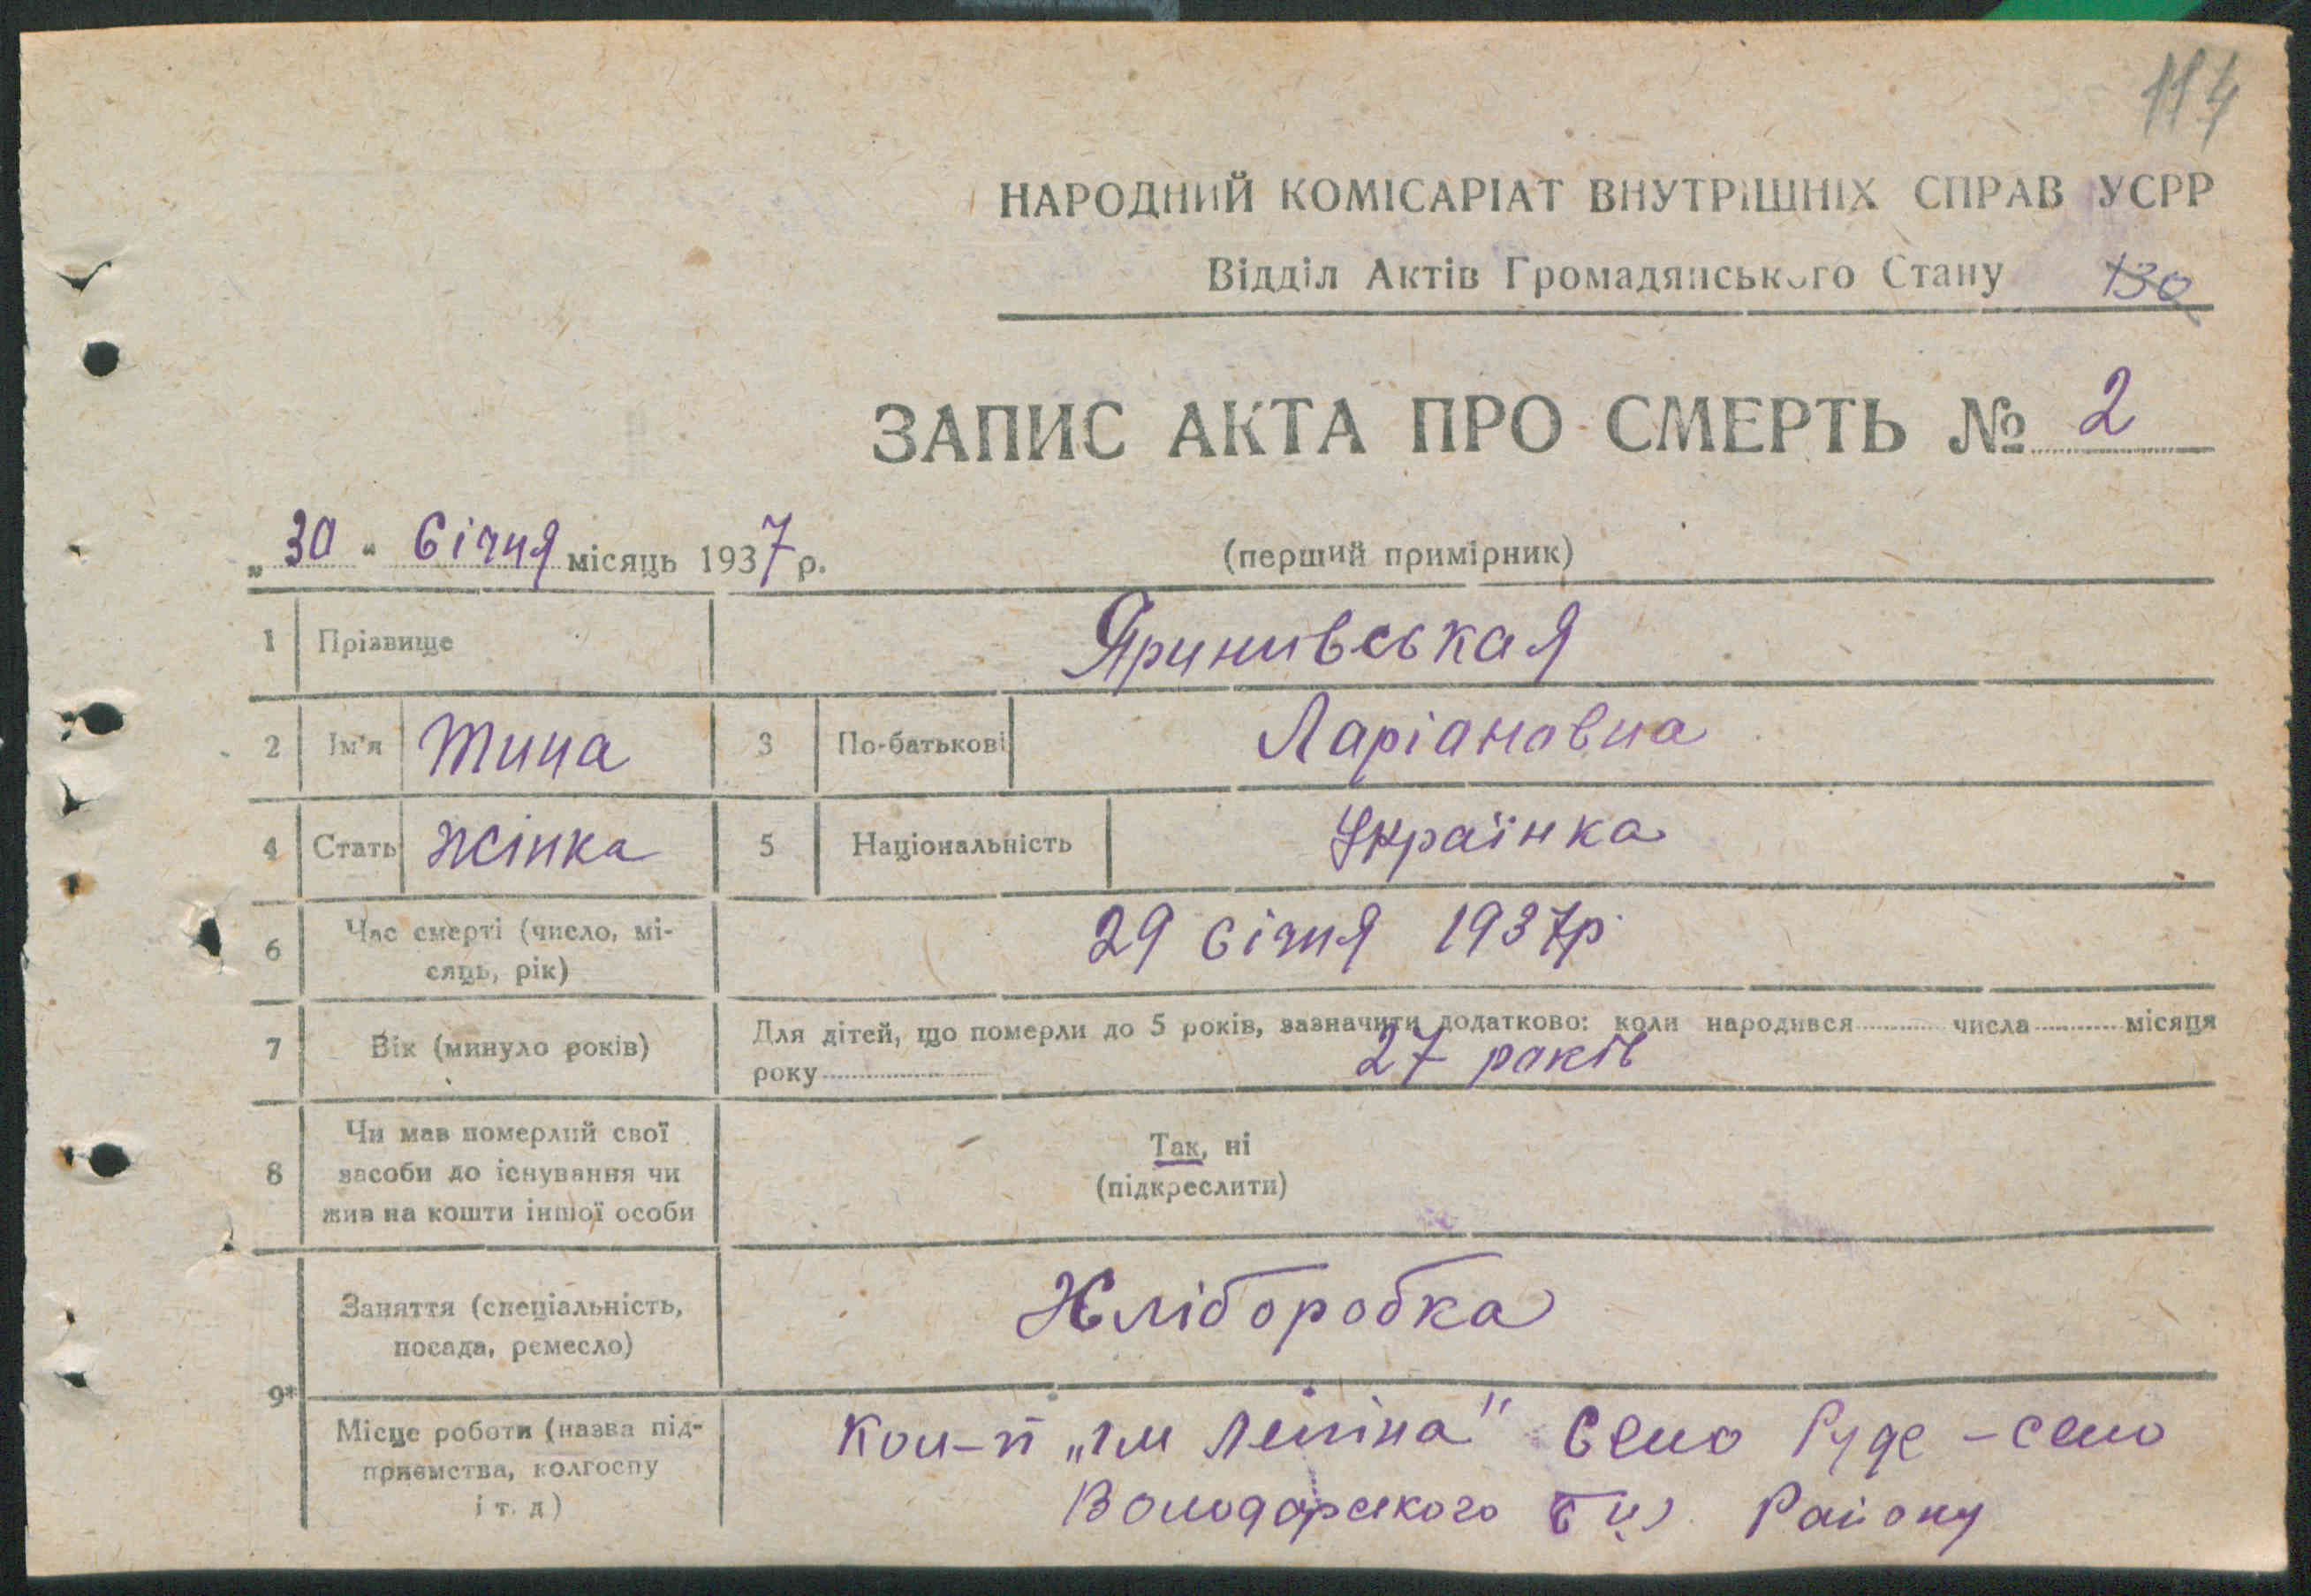 114
НАРОДНИЙ КОМІСАРІАТ ВНУТРІШНІХ СПРАВ УСРР
Відділ Актів Громадянського Стану 130
ЗАПИС АКТА ПРО СМЕРТЬ № 2
„30" Січня місяць 1937 р. (перший примірник)
1 Прізвище Яринивськая
2 Ім'я Тина 3 По-батькові Ларіановна
4 Стать жінка 5 Національність Українка
6 Час смерті (число, мі-
сяць, рік) 29 січня 1937р.
7 Вік (минуло років) Для дітей, що померли до 5 років, зазначити додатково: коли народився числа місяця
року 27 раків
8 Чи мав померлий свої
засоби до існування чи
жив на кошти іншої особи
Так, ні
(підкреслити)
9* Заняття (спеціальність,
посада, ремесло) Хліборобка
Місце роботи (назва під-
приємства, колгоспу
і т. д)
Кол-п „ім Леніна" Село Руде-село
Володарського Району